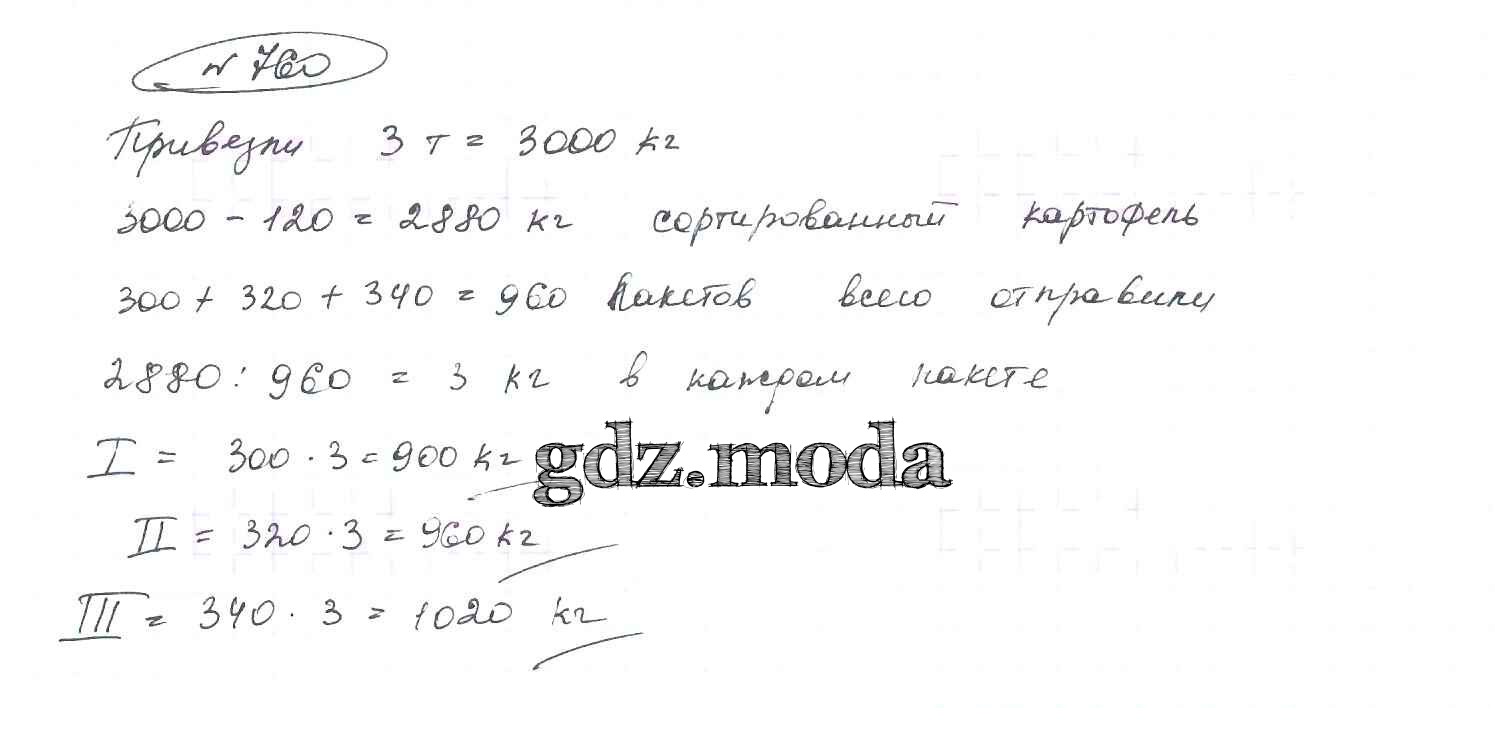 № 760
Привезли 3 т = 3000 кг
3000 - 120 = 2880 кг сортированный картофель
300 + 320 + 340 = 960 пакетов всего отправили
2880 : 960 = 3 кг в каждом пакете
I = 300 · 3 = 900 кг
gdz.moda
II = 320 · 3 = 960 кг
III = 340 · 3 = 1020 кг